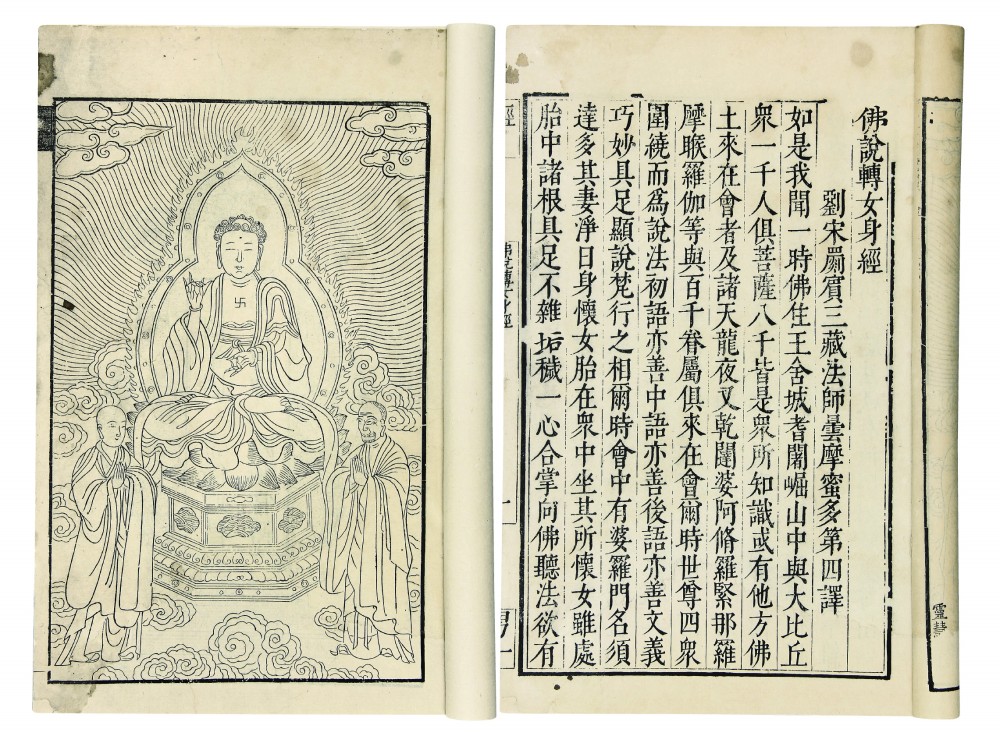 佛說轉女身經
劉宋罽賓三藏法師曇摩蜜多第四譯
如是我聞一時佛住王舍城耆闍崛山中與大比丘
衆一千人俱菩薩八千皆是衆所知識或有他方佛
土來在會者及諸天龍夜叉乾闥婆阿脩羅緊那羅
摩睺羅伽等與百千眷屬俱來在會爾時世尊四衆
圍繞而爲說法初語亦善中語亦善後語亦善文義
巧妙具足顯說梵行之相爾時會中有婆羅門名須
達多其妻淨日身懷女胎在衆中坐其所懷女雖處
胎中諸根具足不雜垢穢一心合掌向佛聽法欲有
經
佛說轉女身經
一
男一
靈彗